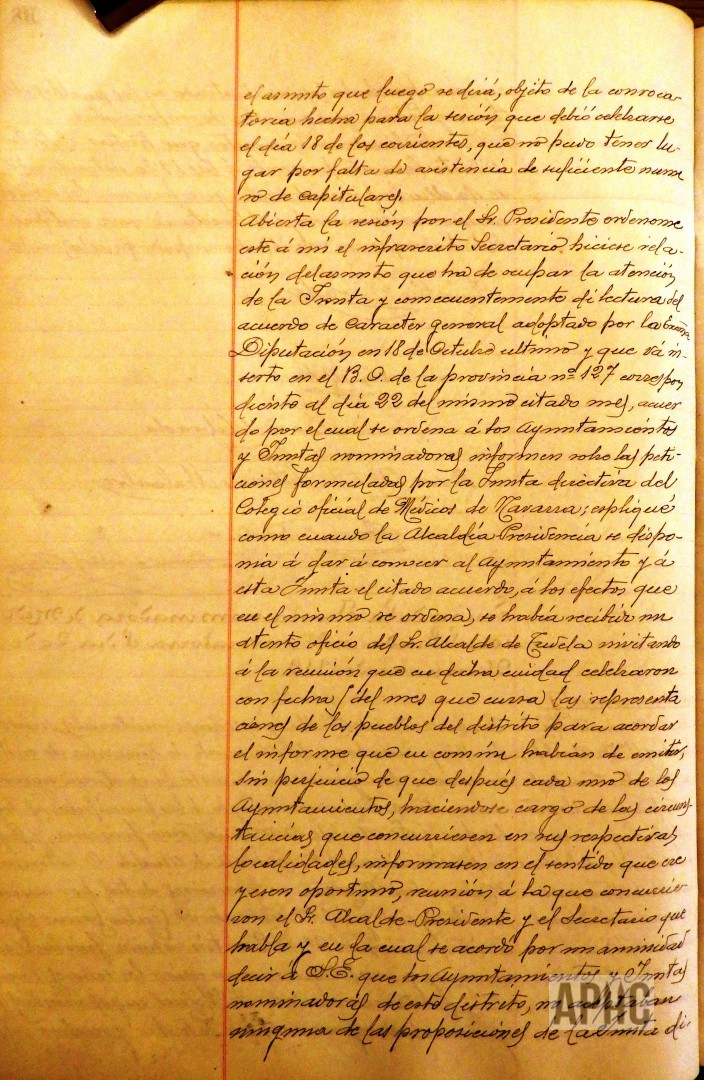 el asunto que luego se dirá, objeto de la convoca-
toria hecha para la sesión que debió celebrarse
el día 18 de los corrientes, que no pudo tener lu-
gar por falta de asistencia de suficiente nume
ro de capitulares.
Abierta la sesión por el Sr. Presidente ordenome
este á mi el infrascrito Secretario hiciese rela-
ción del asunto que ha de ocupar la atención
de la Junta y consecuentemente di lectura del
acuerdo de caracter general adoptado por la Excma
Diputación en 18 de Octubre ultimo y que vá in-
serto en el B. O. de la provincia nº 127 correspon
diente al día 22 del mismo citado mes, acuer
do por el cual se ordena á los Ayuntamientos
y Juntas nominadoras informen sobre las peti-
ciones formuladas por la Junta directiva del
Colegio oficial de Médicos de Navarra; expliqué
como cuando la Alcaldía Presidencia se dispo-
nia á dar á conocer al Ayuntamiento y á
esta Junta el citado acuerdo, á los efectos que
en el mismo se ordena, se había recibido un
atento oficio del Sr. Alcalde de Tudela invitando
á la reunión que en dicha ciudad celebraron
con fecha del mes que cursa las representa
ciones de los pueblos del distrito para acordar
el informe que en común habían de emitir,
sin perjuicio de que después cada uno de los
Ayuntamientos, haciendose cargo de las circuns-
tancias que concurriesen en sus respectivas
localidades, informasen en el sentido que cre
yesen oportuno, reunión á la que concurrie-
ron el Sr. Alcalde-Presidente y el Secretario que
habla y en la cual se acordo por unanimidad
decir á S.E. que los Ayuntamientos y Juntas
nominadoras de este distrito, no aceptaban
ninguna de las proposiciones de la Junta di-
APHC